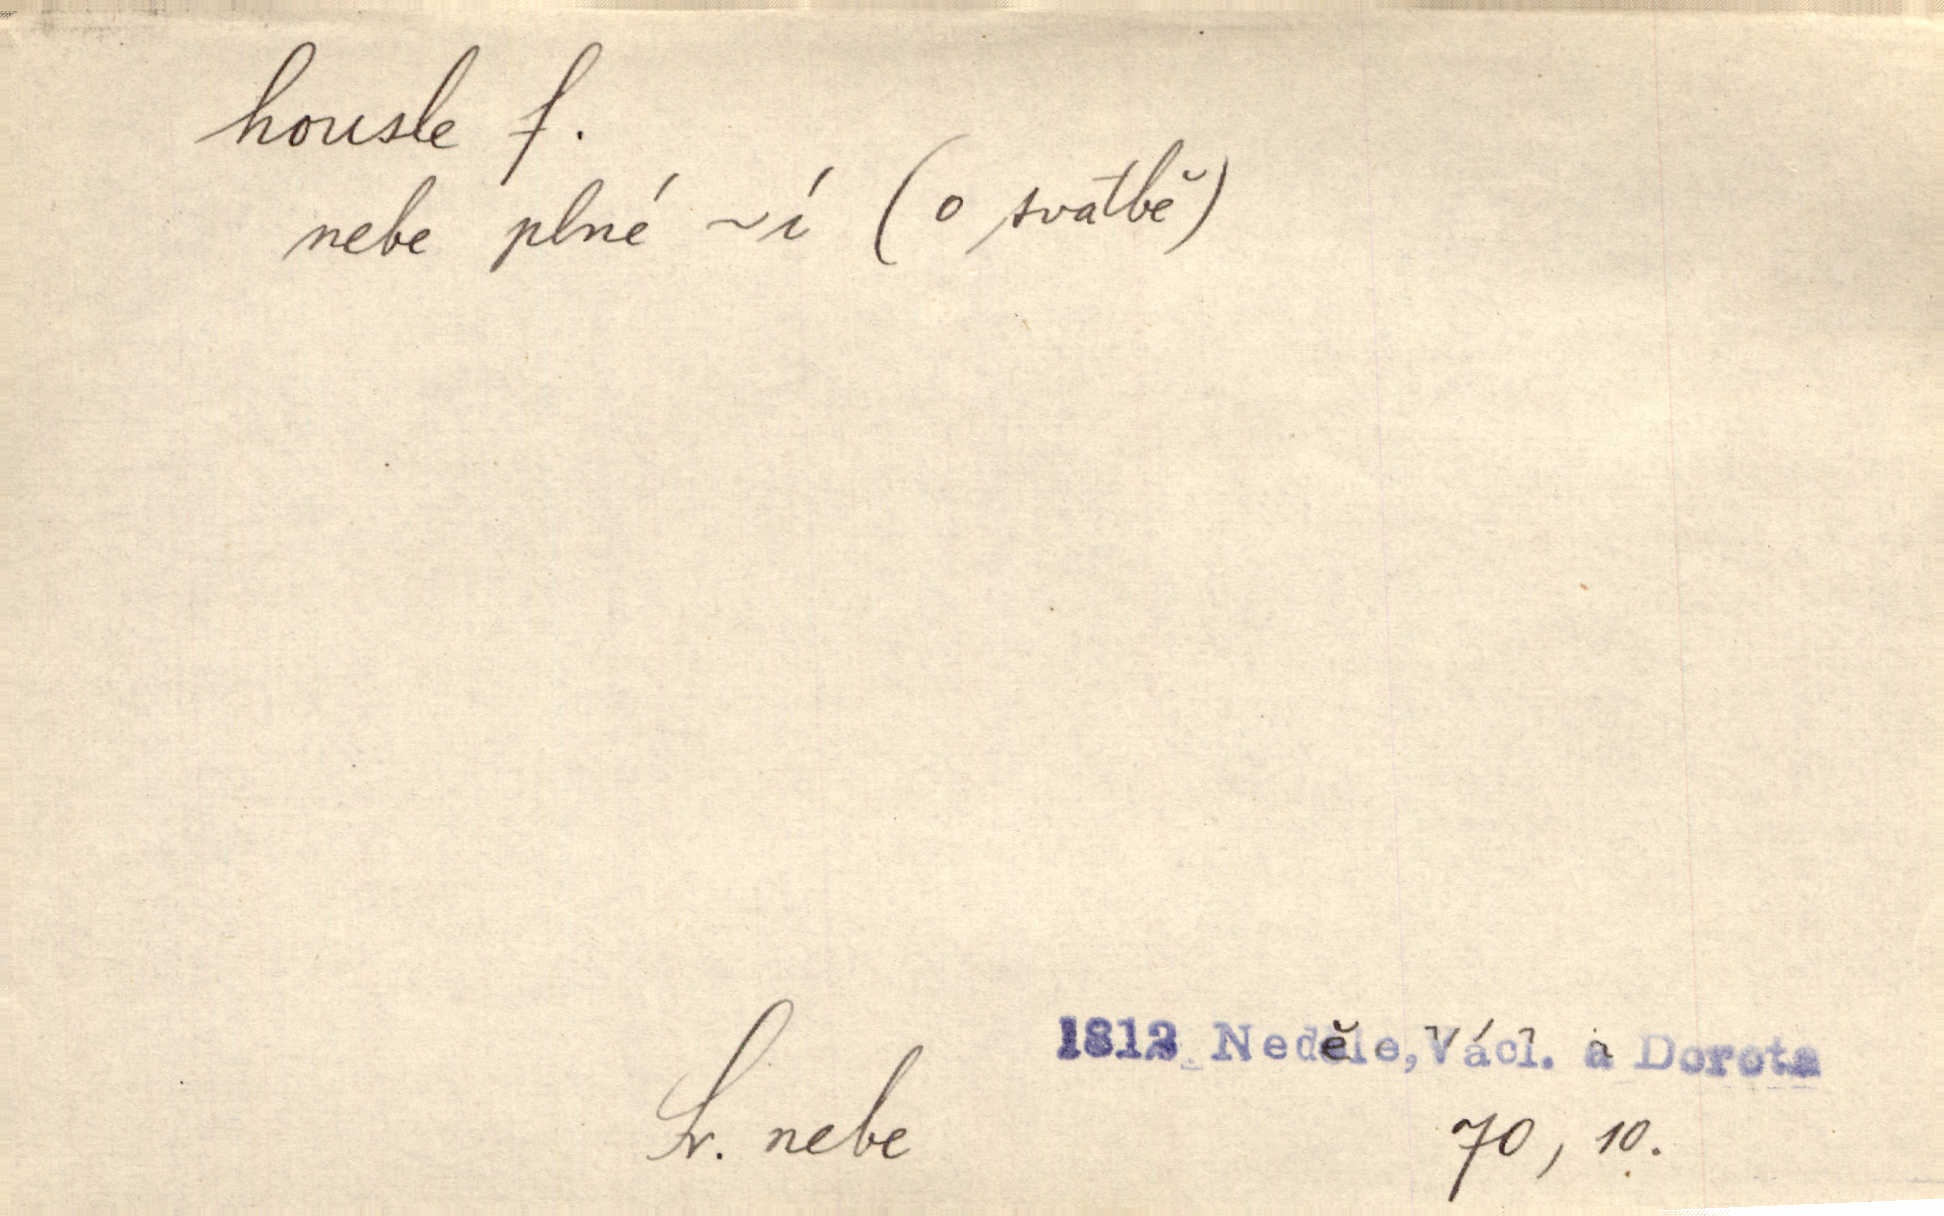 housle f.
nebe plné ~í (o svatbě)
Sr. nebe
1812 Neděle, Václ. a Dorota
70, 10.